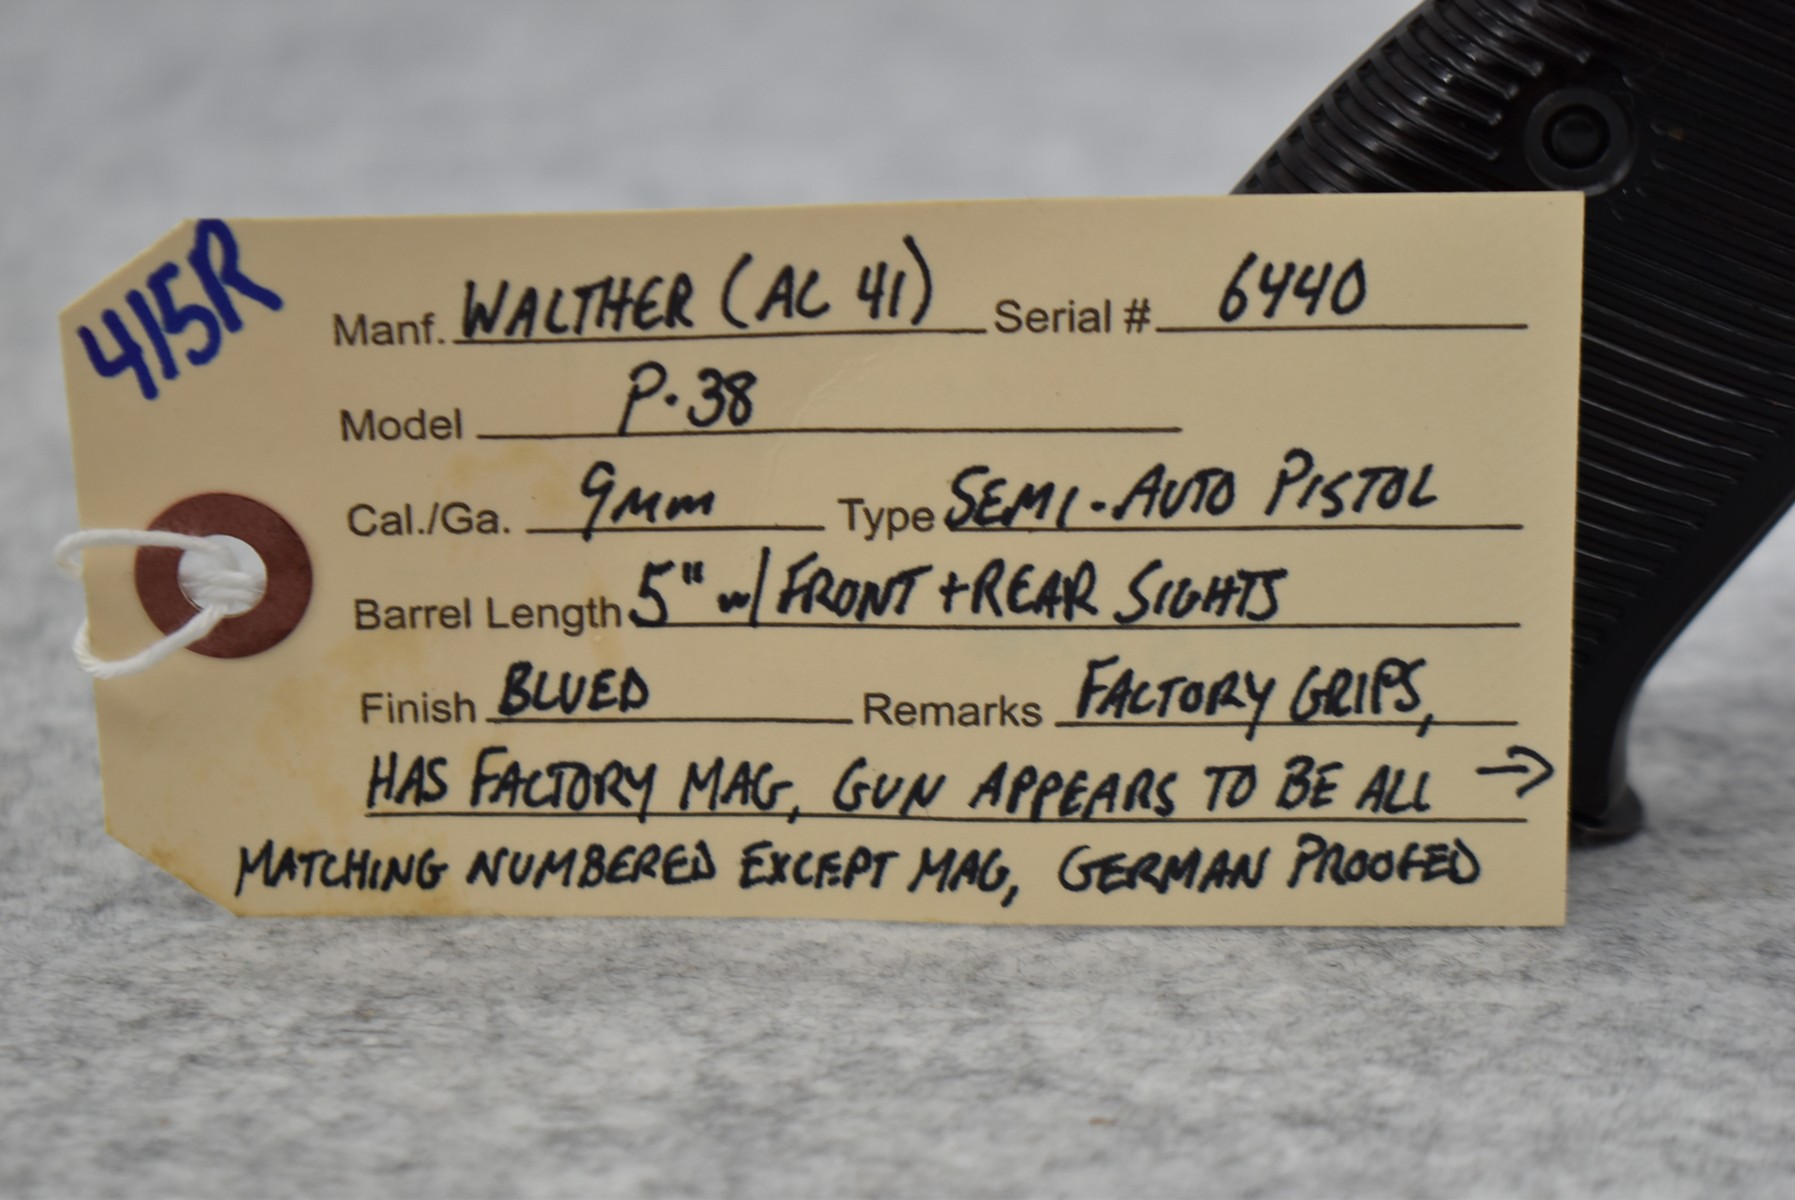 415R
Manf. WALTHER (AC 41) Serial # 6440
Model P.38
Cal./Ga. 9mm Type SEMI-AUTO PISTOL
Barrel Length 5" w/ FRONT + REAR SIGHTS
Finish BLUED Remarks FACTORY GRIPS,
HAS FACTORY MAG, GUN APPEARS TO BE ALL →
MATCHING NUMBERED EXCEPT MAG, GERMAN PROOFED